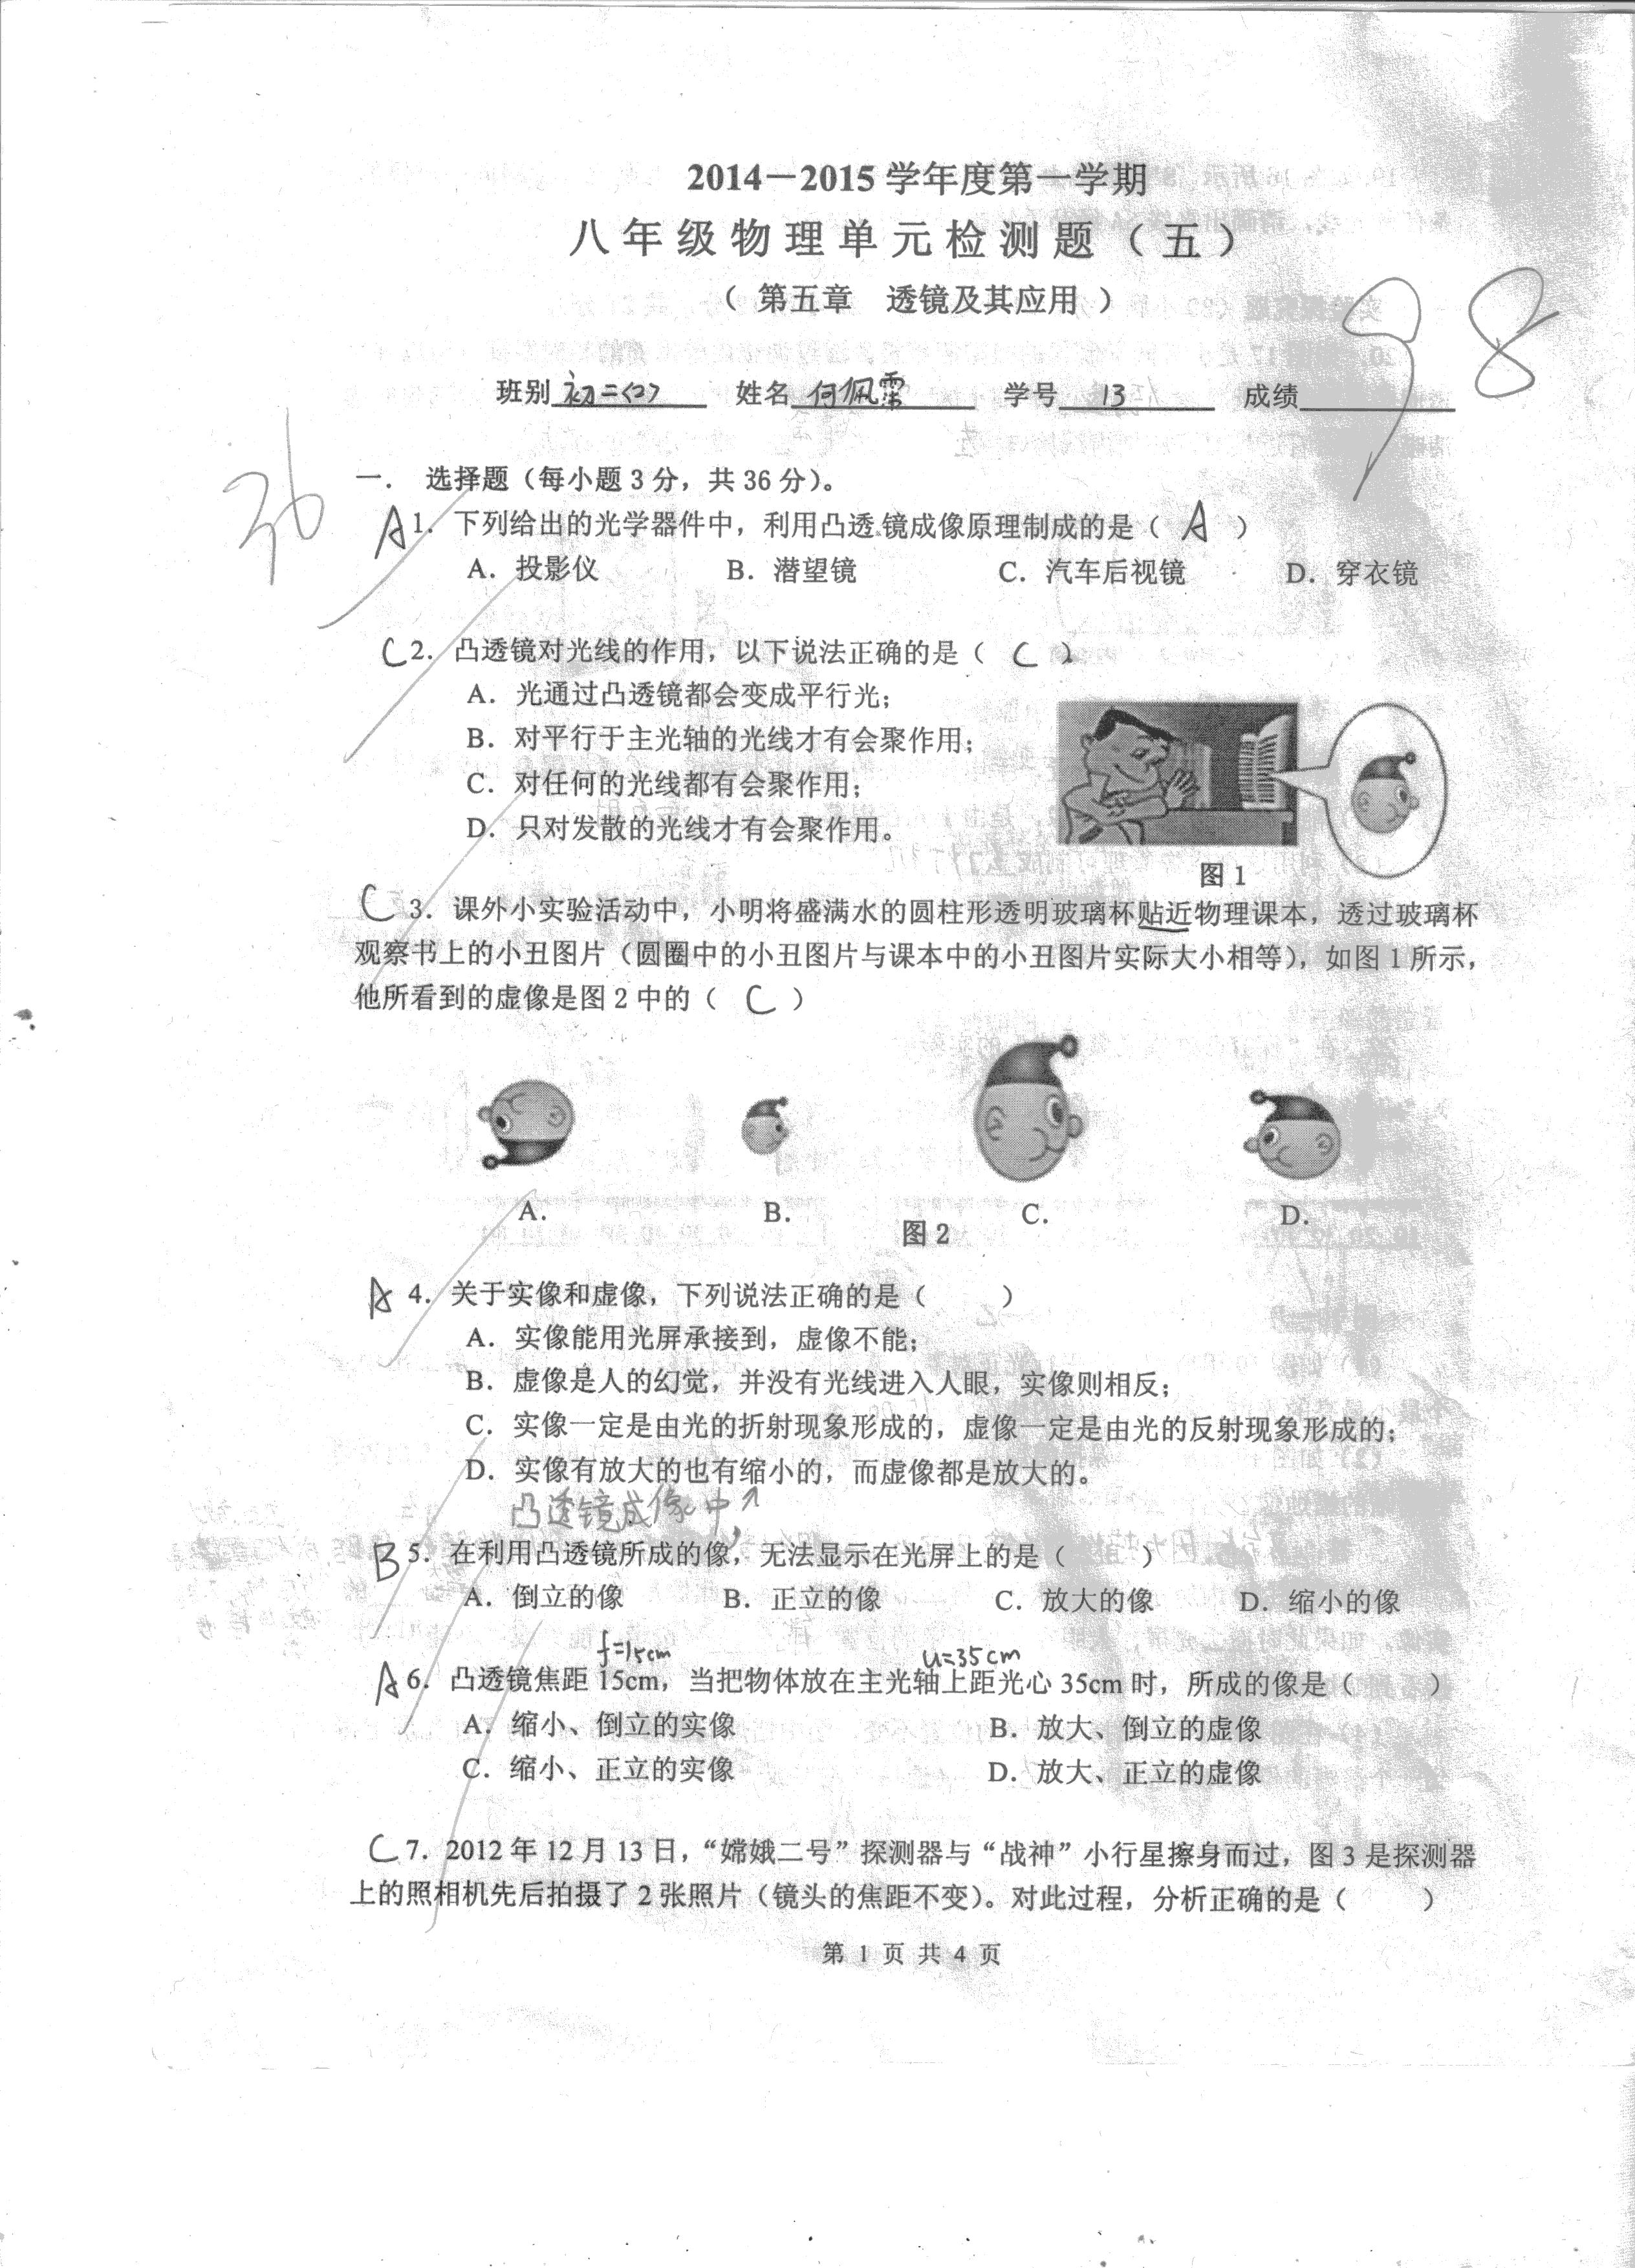 2014－2015学年度第一学期
八年级物理单元检测题（五）
（ 第五章　透镜及其应用 ）
98
班别 初二<2> 姓名 何佩霈 学号 13 成绩
36
一． 选择题（每小题3分，共36分）。
A 1．下列给出的光学器件中，利用凸透镜成像原理制成的是（ A ）
A．投影仪 B．潜望镜 C．汽车后视镜 D．穿衣镜
C 2．凸透镜对光线的作用，以下说法正确的是（ C ）
A．光通过凸透镜都会变成平行光；
B．对平行于主光轴的光线才有会聚作用；
C．对任何的光线都有会聚作用；
D．只对发散的光线才有会聚作用。
图1
C 3．课外小实验活动中，小明将盛满水的圆柱形透明玻璃杯贴近物理课本，透过玻璃杯
观察书上的小丑图片（圆圈中的小丑图片与课本中的小丑图片实际大小相等），如图1所示，
他所看到的虚像是图2中的（ C ）
A． B． C． D．
图2
A 4．关于实像和虚像，下列说法正确的是（ ）
A．实像能用光屏承接到，虚像不能；
B．虚像是人的幻觉，并没有光线进入人眼，实像则相反；
C．实像一定是由光的折射现象形成的，虚像一定是由光的反射现象形成的；
D．实像有放大的也有缩小的，而虚像都是放大的。
凸透镜成像中↗
B 5．在利用凸透镜所成的像，无法显示在光屏上的是（ ）
A．倒立的像 B．正立的像 C．放大的像 D．缩小的像
f=15cm u=35cm
A 6．凸透镜焦距15cm，当把物体放在主光轴上距光心35cm时，所成的像是（ ）
A．缩小、倒立的实像 B．放大、倒立的虚像
C．缩小、正立的实像 D．放大、正立的虚像
C 7．2012年12月13日，“嫦娥二号”探测器与“战神”小行星擦身而过，图3是探测器
上的照相机先后拍摄了2张照片（镜头的焦距不变）。对此过程，分析正确的是（ ）
第 1 页 共 4 页